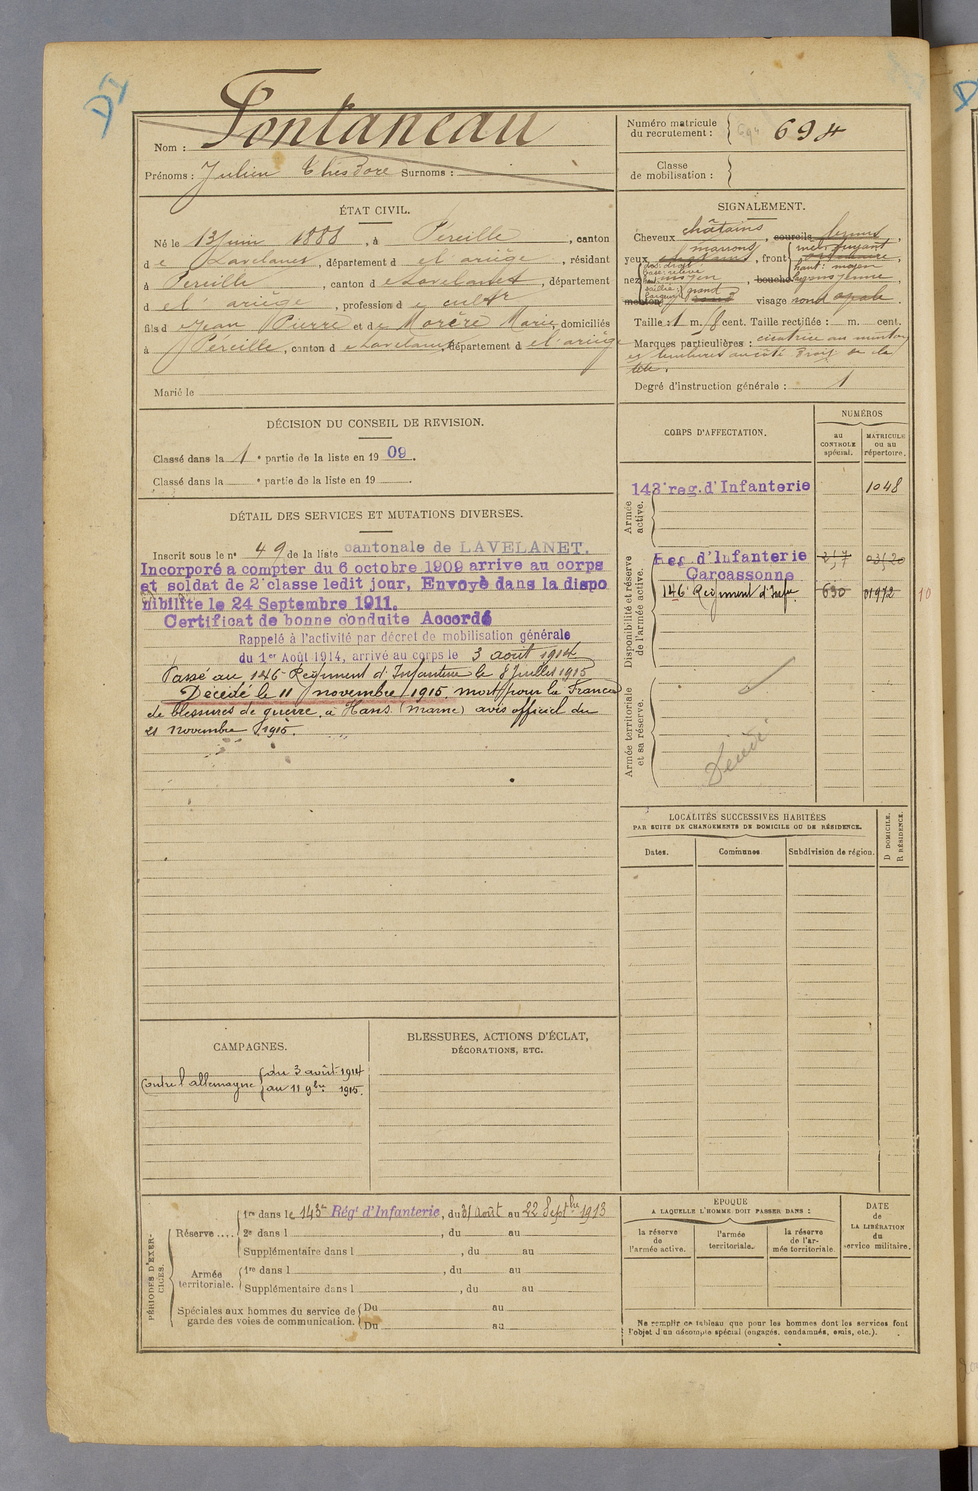 DI
Nom : Fontaneau
Prénoms : Julien Théodore Surnoms :
Numéro matricule du recrutement : 694
Classe de mobilisation :
ÉTAT CIVIL.
Né le 13 juin 1888, à Péreille, canton
de Lavelanet, département de l'ariège, résidant
à Péreille, canton de Lavelanet, département
de l'ariège, profession de cultr
fils de Jean Pierre et de Morère Marie, domiciliés
à Péreille, canton de Lavelanet, département de l'ariège
Marié le
SIGNALEMENT.
Cheveux châtains, sourcils bruns,
yeux marrons, front
nez moyen, bouche
menton rond visage ovale.
Taille : 1 m. cent. Taille rectifiée : m. cent.
Marques particulières : cicatrice au menton
tête.
Degré d'instruction générale : 1
DÉCISION DU CONSEIL DE REVISION.
Classé dans la 1e partie de la liste en 1909.
Classé dans la e partie de la liste en 19 .
DÉTAIL DES SERVICES ET MUTATIONS DIVERSES.
Inscrit sous le n° 49 de la liste cantonale de LAVELANET.
Incorporé a compter du 6 octobre 1909 arrive au corps
et soldat de 2e classe ledit jour, Envoyé dans la dispo
nibilite le 24 Septembre 1911.
Certificat de bonne conduite Accordé
Rappelé à l'activité par décret de mobilisation générale
du 1er Août 1914, arrivé au corps le 3 août 1914
Passé au 146e Régiment d'Infanterie le 8 Juillet 1915
Décédé le 11 novembre 1915 mort pour la France
de blessures de guerre, à Hans (Marne) avis officiel du
21 novembre 1915.
CORPS D'AFFECTATION.
NUMÉROS
au CONTROLE spécial.
MATRICULE ou au répertoire.
Armée active.
143e reg. d'Infanterie 1048
Disponibilité et réserve de l'armée active.
Reg. d'Infanterie
Carcassonne
146e Régiment d'Infie 630 01972 10
Armée territoriale et sa réserve.
LOCALITÉS SUCCESSIVES HABITÉES
PAR SUITE DE CHANGEMENTS DE DOMICILE OU DE RÉSIDENCE.
Dates. Communes. Subdivision de région.
D DOMICILE.
R RÉSIDENCE.
CAMPAGNES.
Contre l'allemagne du 3 août 1914
au 11 9bre 1915.
BLESSURES, ACTIONS D'ÉCLAT,
DÉCORATIONS, ETC.
PÉRIODES D'EXERCICES.
Réserve ....
1re dans le 143e Régt d'Infanterie, du 31 août au 22 Septbre 1913
2e dans l , du au
Supplémentaire dans l , du au
Armée territoriale.
1re dans l , du au
Supplémentaire dans l , du au
Spéciales aux hommes du service de garde des voies de communication.
Du au
Du au
EPOQUE
A LAQUELLE L'HOMME DOIT PASSER DANS :
la réserve de l'armée active.
l'armée territoriale.
la réserve de l'armée territoriale.
DATE de LA LIBÉRATION du service militaire.
Ne remplir ce tableau que pour les hommes dont les services font
l'objet d'un décompte spécial (engagés, condamnés, omis, etc.).